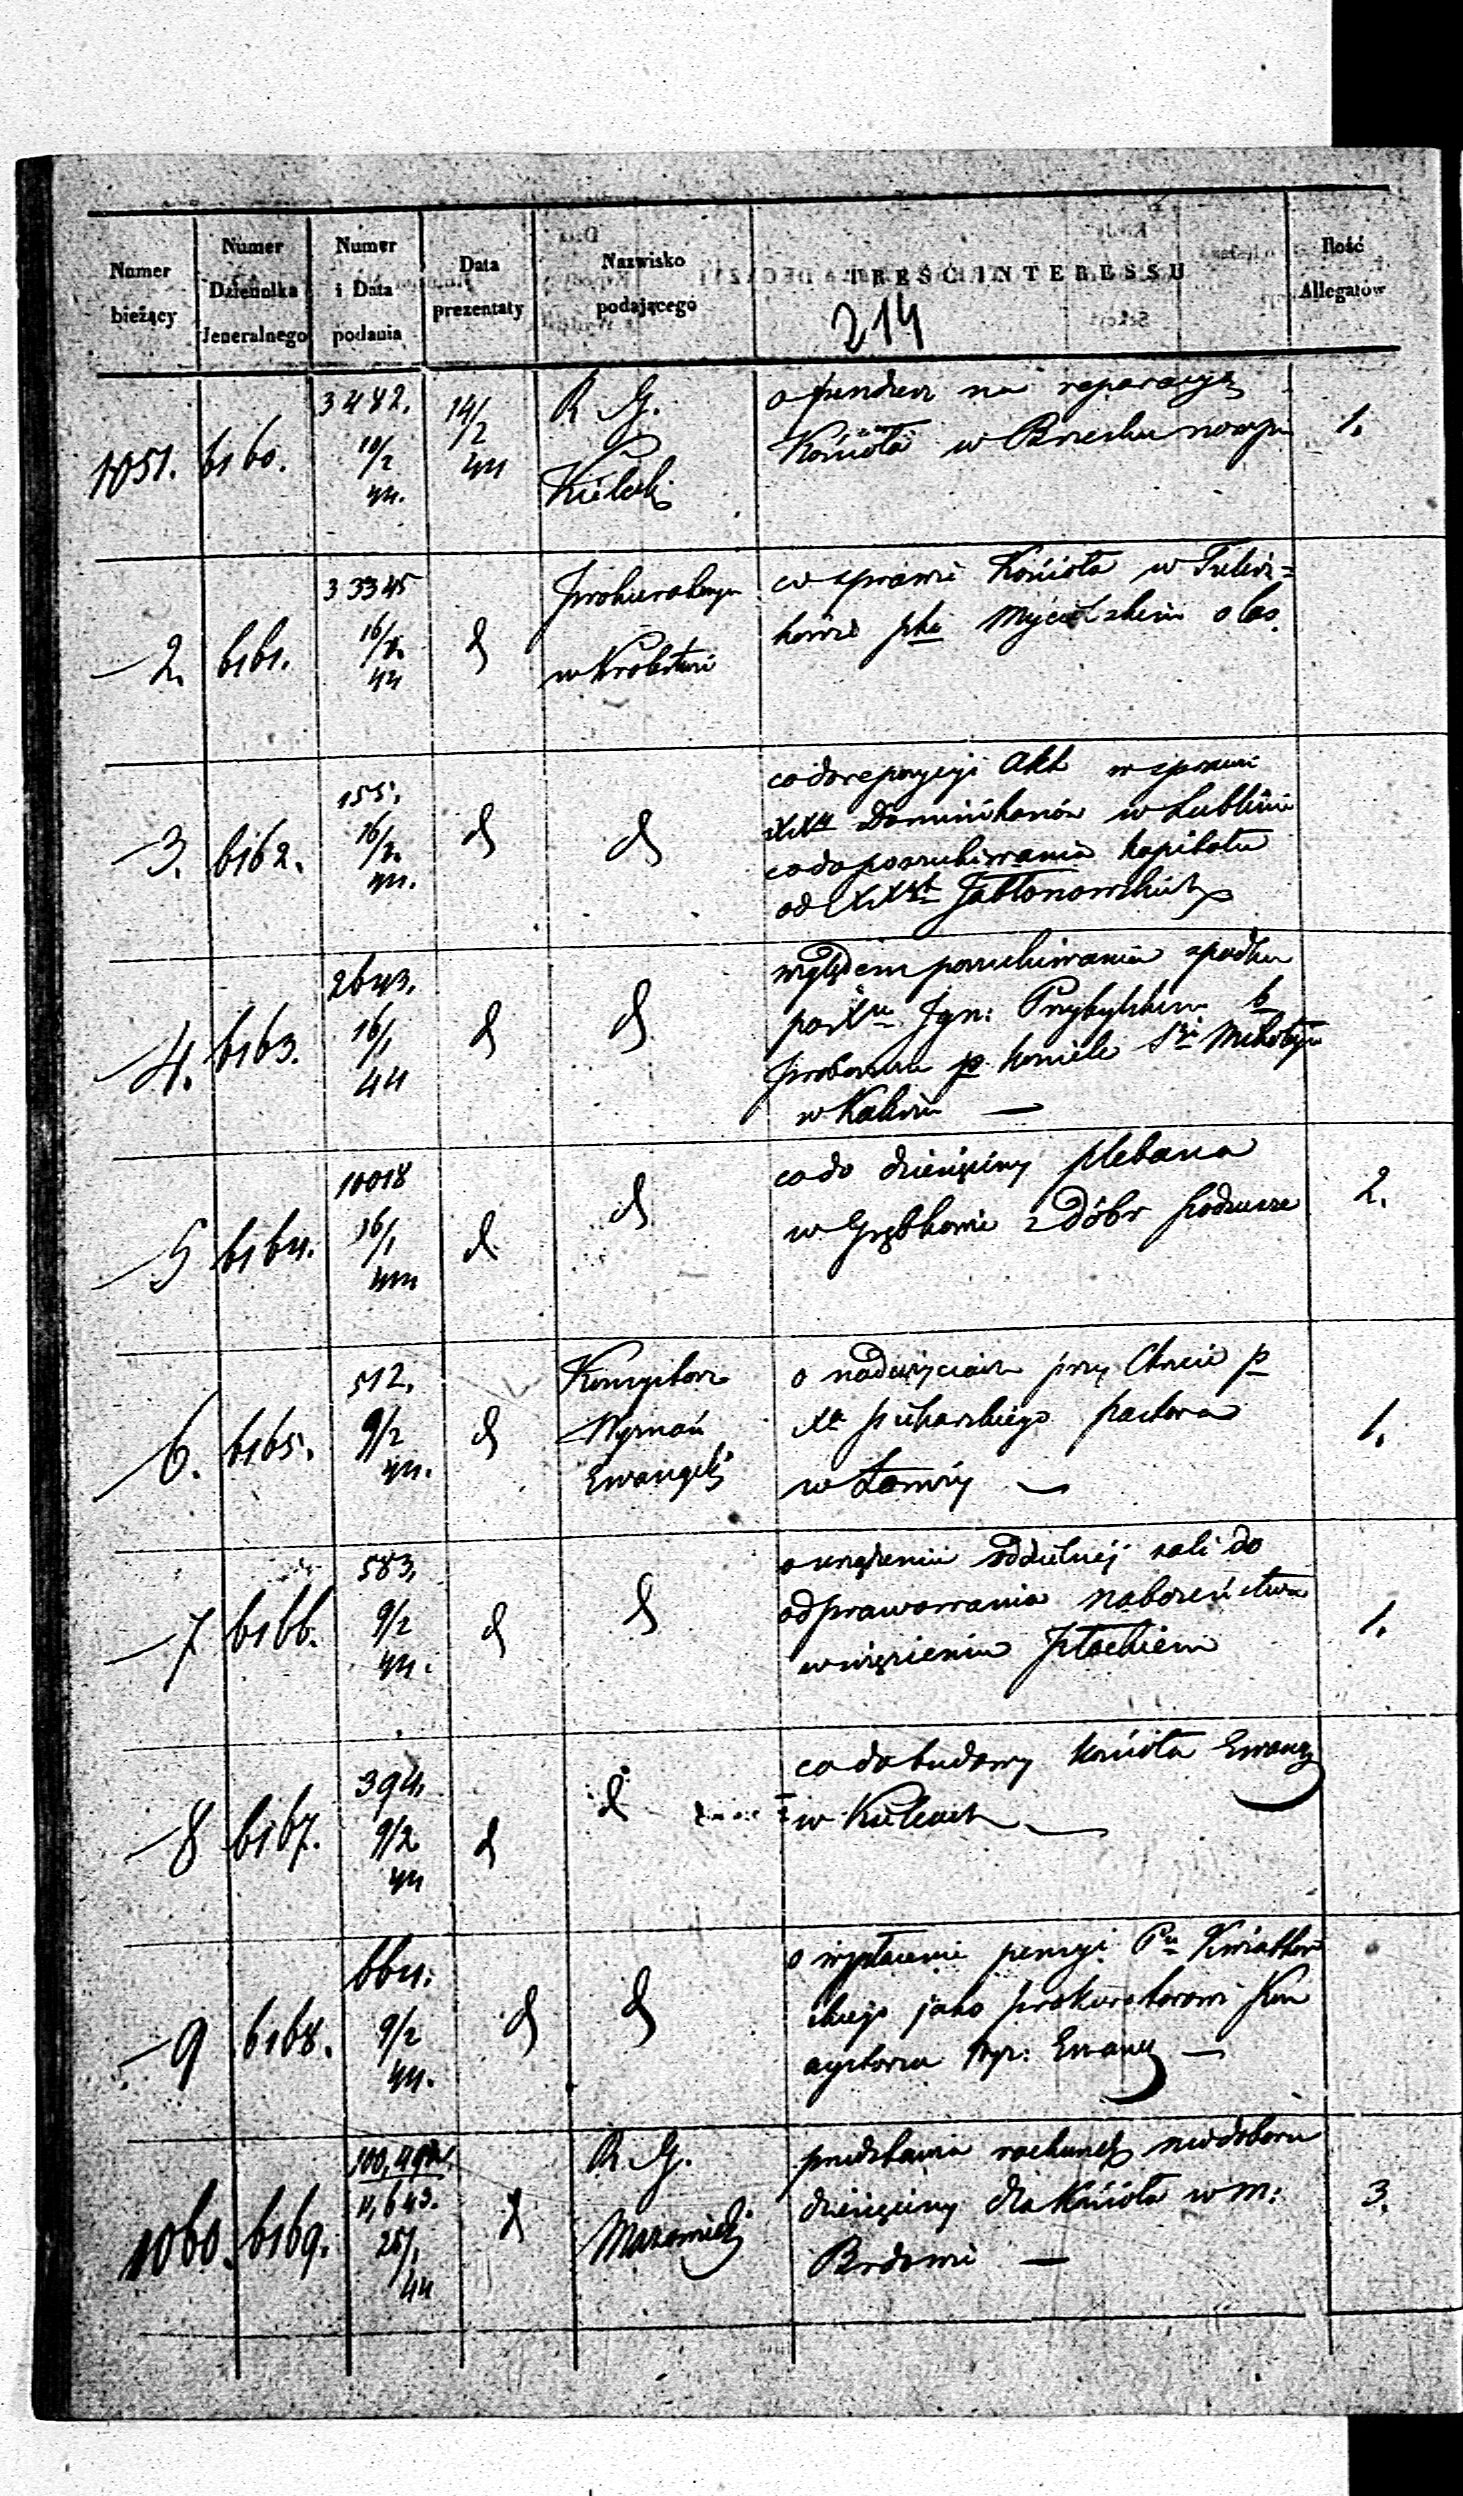 Numer bieżący
Numer Dziennika Jeneralnego
Numer i Data podania
Data prezentaty
Nazwisko podającego
TREŚĆ INTERESSU
Ilość Allegatów
214
1051. 6160. 3482. 10/2 44. 14/2 44 R. G. Kielecki
o fundusz na reparacyą
Kościoła w Brzesku nowym
1.
2. 6161. 33345 16/2 44 d Prokurator
w sprawie Kościoła w Tulisz=
kowie pko Mycielskim o las.
3. 6162. 155. 16/2 44. d d
co do repozycyi Akt w sprawie
XXw Dominikanów w Lublinie
co do poszukiwania kapitału
od XXżt Jabłonowskich
4. 6163. 2643. 16/1 44 d d
względem poszukiwania spadku
po Xu Ign: Przybylskim b
proboszczu p kościele Sgo Mikołaja
w Kaliszu —
5 6164. 10018 16/1 44 d d
co do dziesięciny plebana
w Grębkowie z Dóbr
2.
6. 6165. 512. 9/2 44. d Konsystorz Wyznań Ewangeli
o nadużyciach przy Chrzcie p
Xa Pucharskiego pastora
w Łomży —
1.
7 6166. 583. 9/2 44. d d
o urządzenie oddzielnéj sali do
odprawowania nabożeństwa
w więzieniu Płockiem
1.
8 6167. 394. 9/2 44 d d
co do budowy kościoła Ewang
w Kielcach —
9 6168. 664. 9/2 44. d d
o wypłacenie pensyi Pu Kwiatkow
skiego jako prokuratorowi Kon
systorza Wyz: Ewang —
1060. 6169. 4,643. 25/1 44 d R. G. Mazowiecki
przedstawia rachunek niedoboru
dziesięciny dla Kościoła w m:
Brdowie —
3.